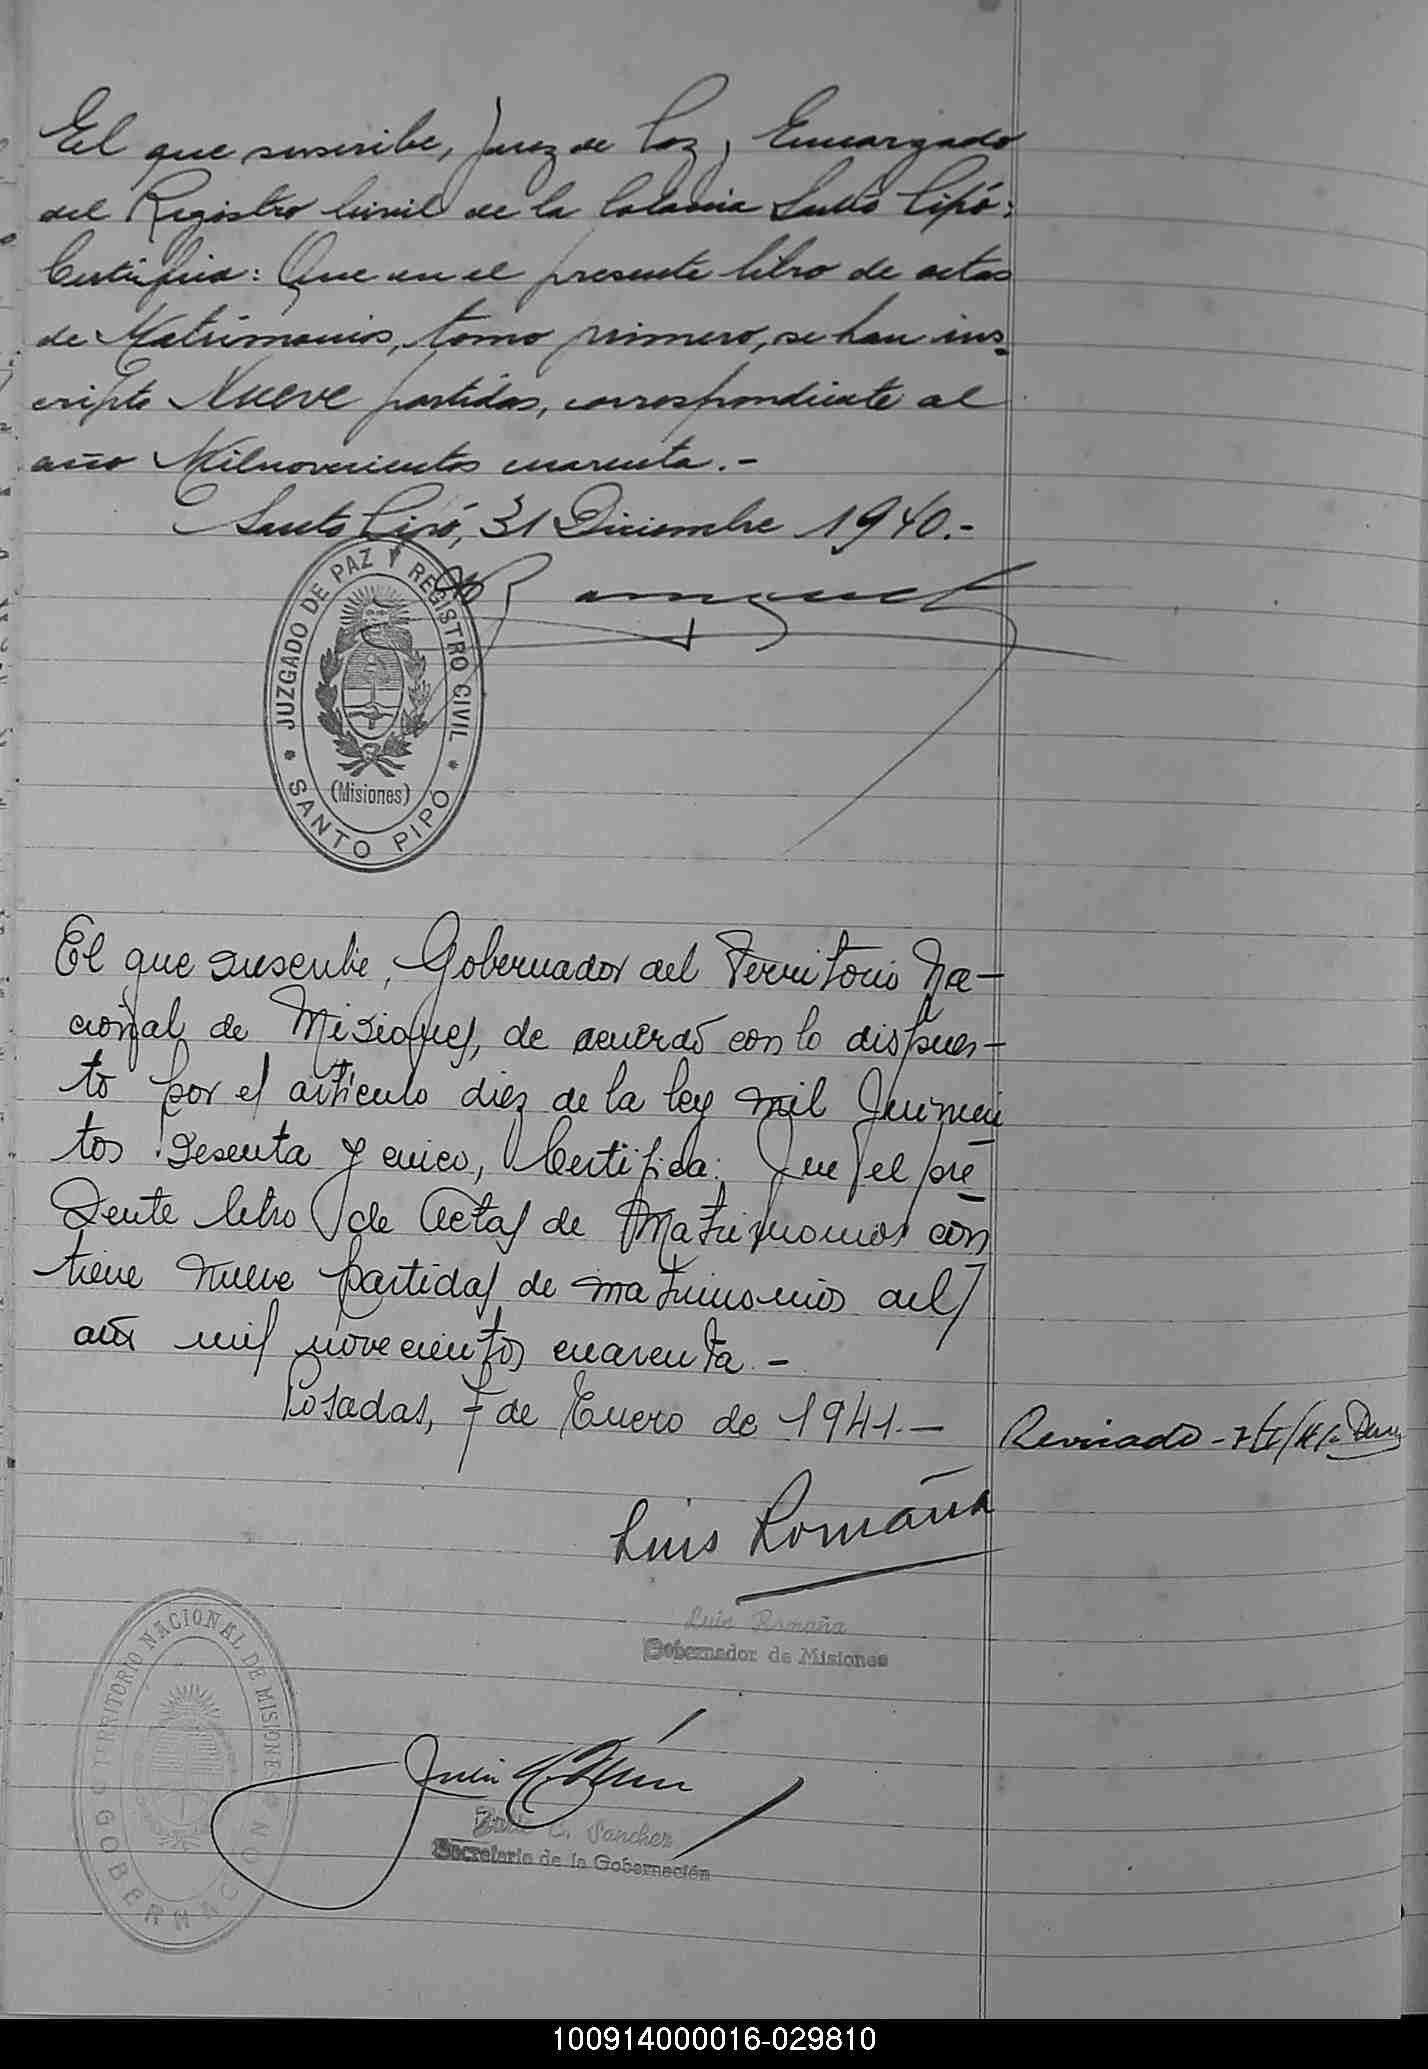 El que suscribe, Juez de Paz y Encargado
del Registro Civil de la Colonia Santo Pipó:
Certifica: Que en el presente libro de actas
de Matrimonios, tomo primero, se han ins-
cripto Nueve partidas, correspondiente al
año Milnovecientos cuarenta.-
Santo Pipó, 31 Diciembre 1940.-
JUZGADO DE PAZ Y REGISTRO CIVIL
(Misiones)
* SANTO PIPÓ *
El que suscribe, Gobernador del Territorio Na-
cional de Misiones, de acuerdo con lo dispues-
to por el artículo diez de la ley mil quinien
tos sesenta y cinco, Certifica: Que el pre-
sente libro de Actas de Matrimonios con
tiene nueve partidas de matrimonios del
año mil novecientos cuarenta.-
Posadas, 7 de Enero de 1941.-
Revisado - 7/I/41.-
Luis Romaña
Luis Romaña
Gobernador de Misiones
TERRITORIO NACIONAL DE MISIONES
GOBERNACION
C. Sanchez
Secretario de la Gobernación
100914000016-029810